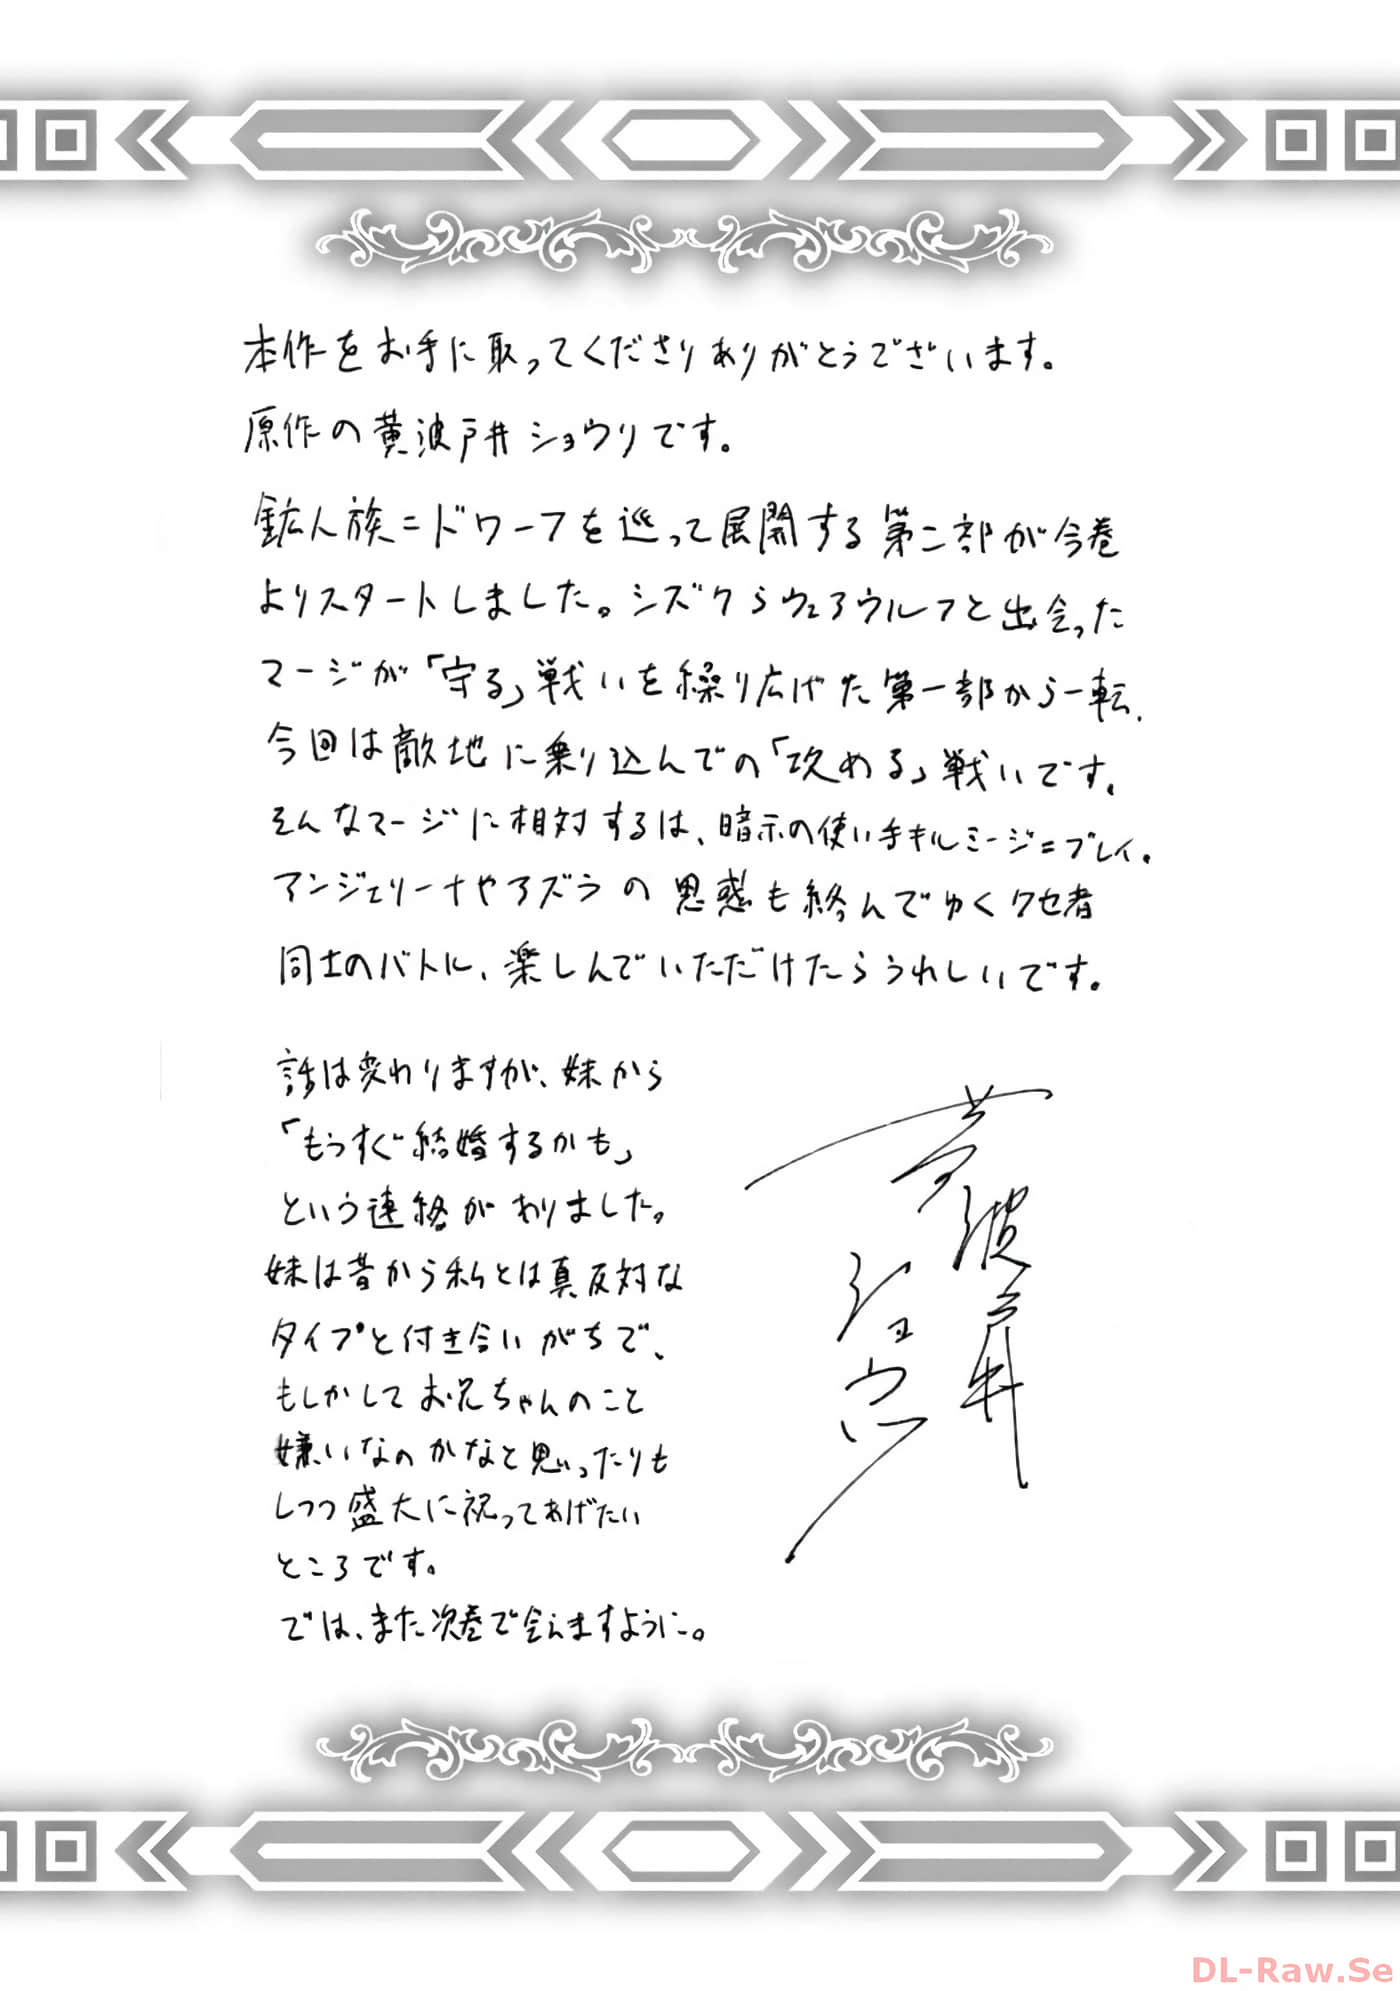 本作をお手に取ってくださりありがとうございます。
原作の黄波戸井ショウリです。
鉱人族=ドワーフを巡って展開する第二部が今巻
よりスタートしました。シズクらウェアウルフと出会った
マージが「守る」戦いを繰り広げた第一部から一転、
今回は敵地に乗り込んでの「攻める」戦いです。
そんなマージに相対するは、暗示の使い手キルミージ=ブレイ。
アンジェリーナやアズラの思惑も絡んでゆくクセ者
同士のバトル、楽しんでいただけたらうれしいです。
話は変わりますが、妹から
「もうすぐ結婚するかも」
という連絡がありました。
妹は昔から私とは真反対な
タイプと付き合いがちで、
もしかしてお兄ちゃんのこと
嫌いなのかなと思ったりも
しつつ盛大に祝ってあげたい
ところです。
では、また次巻で会えますように。
黄波戸井
ショウリ
DL-Raw.Se